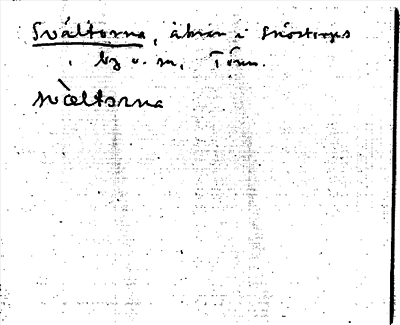 Sváltorna, åkrar i Snöstorps
by o. sn, Tönn.
svàltorna